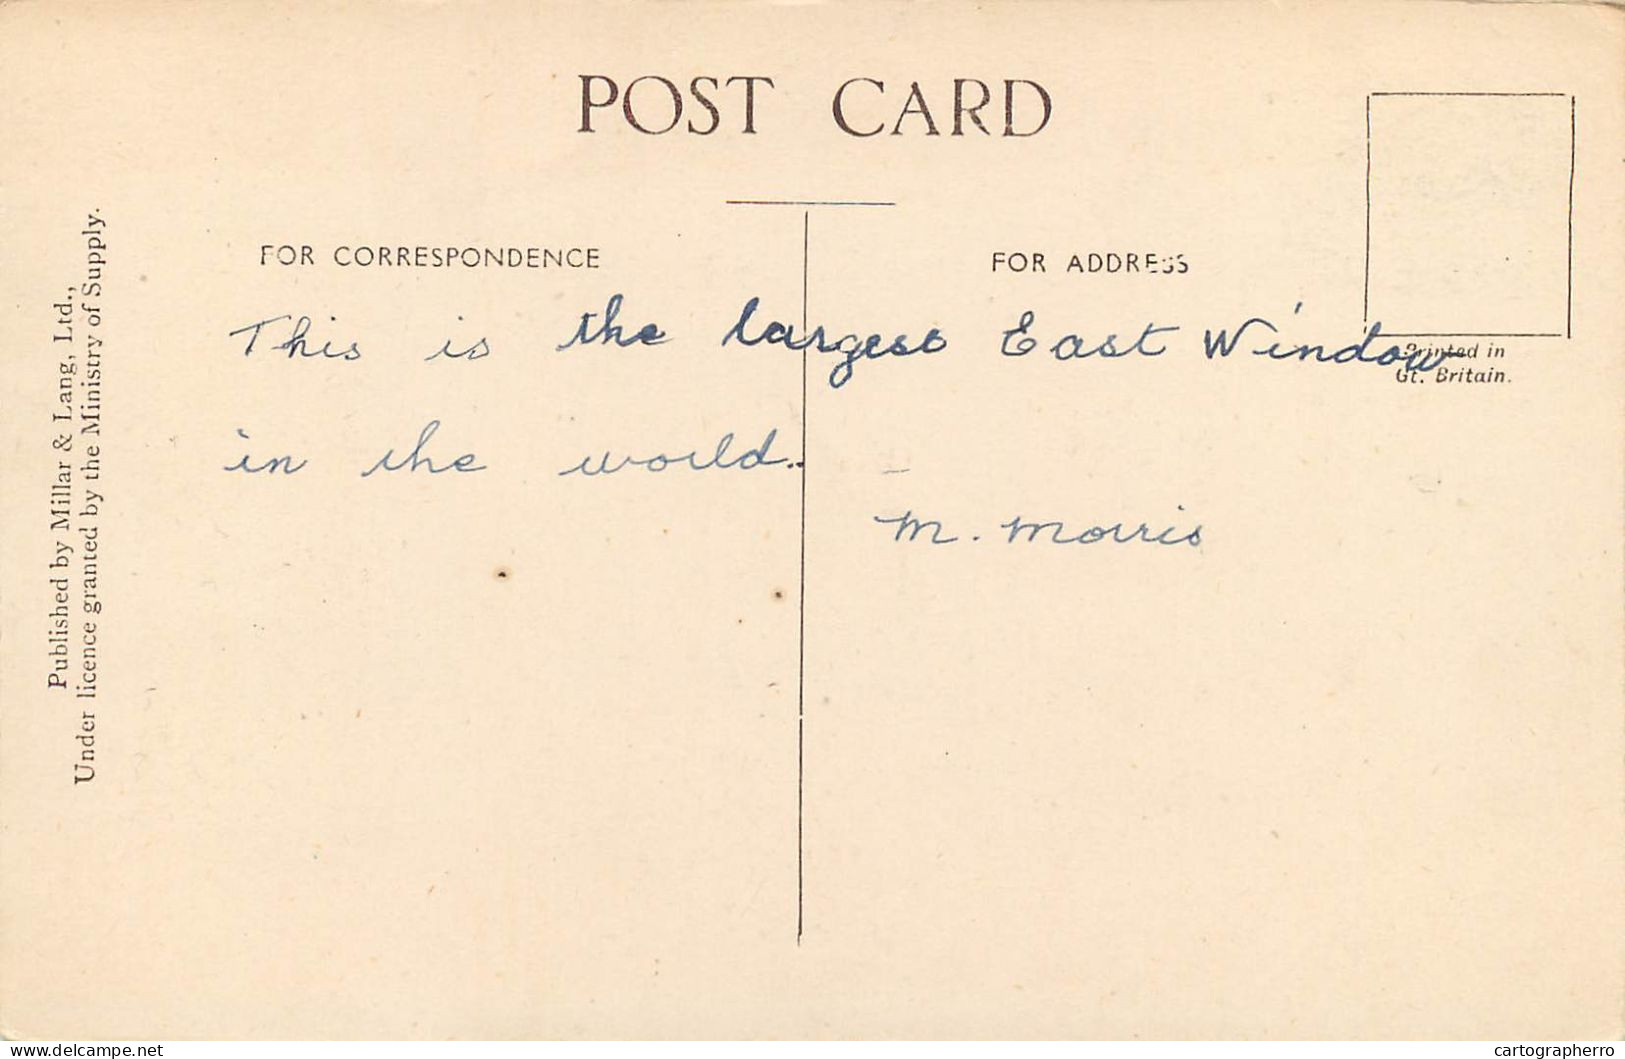 POST CARD
FOR CORRESPONDENCE
FOR ADDRESS
This is the largest East Window
in the world.
M. Morris
Printed in
Gt. Britain.
Published by Millar & Lang, Ltd.,
Under licence granted by the Ministry of Supply.
Delcampe.net
cartographerro